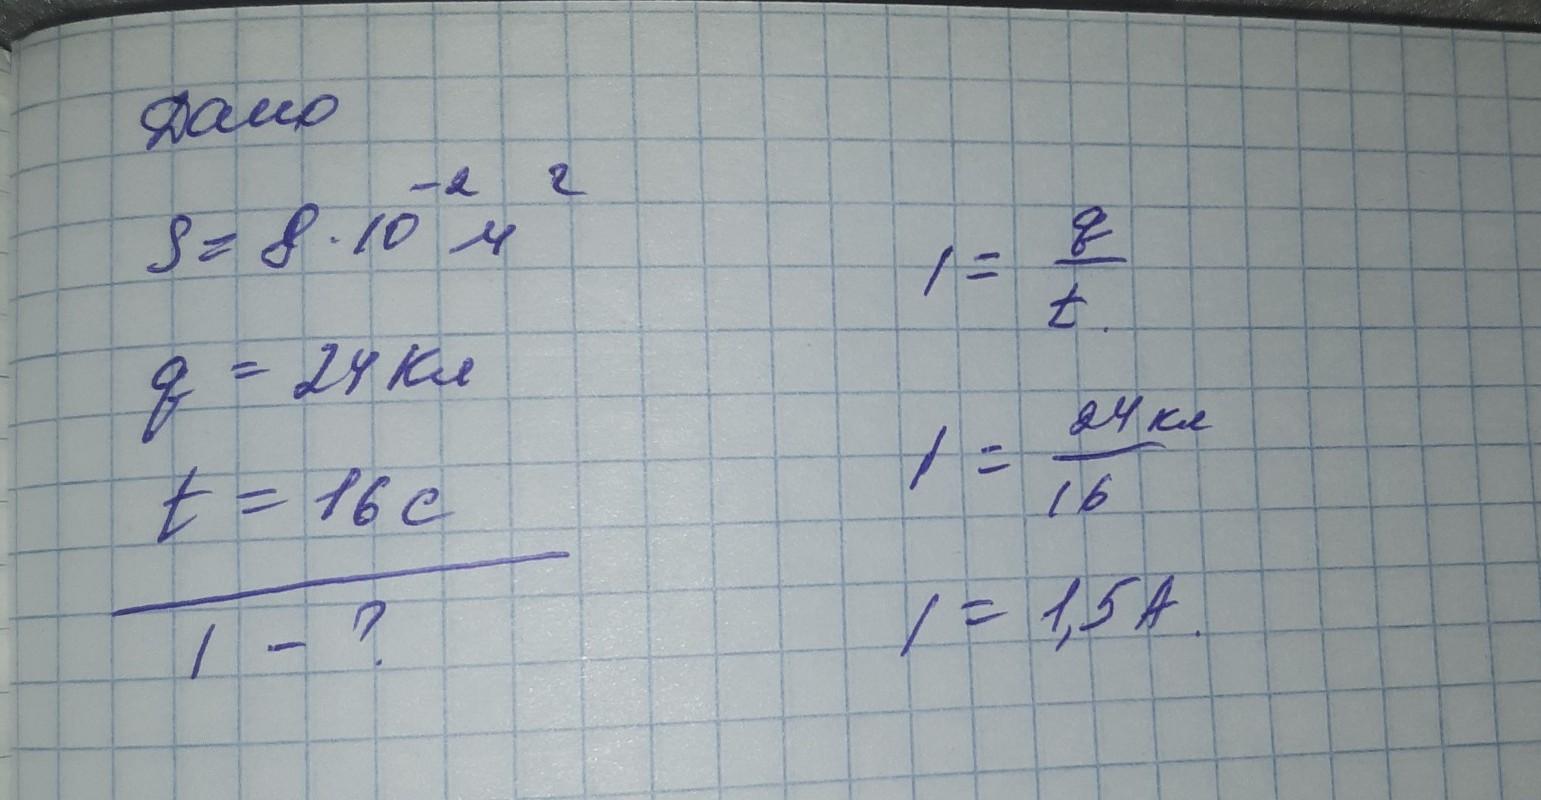 Дано
S = 8 · 10⁻² м²
q = 24 Кл
t = 16 с
I - ?
I = q/t.
I = 24 кл/16
I = 1,5 А.